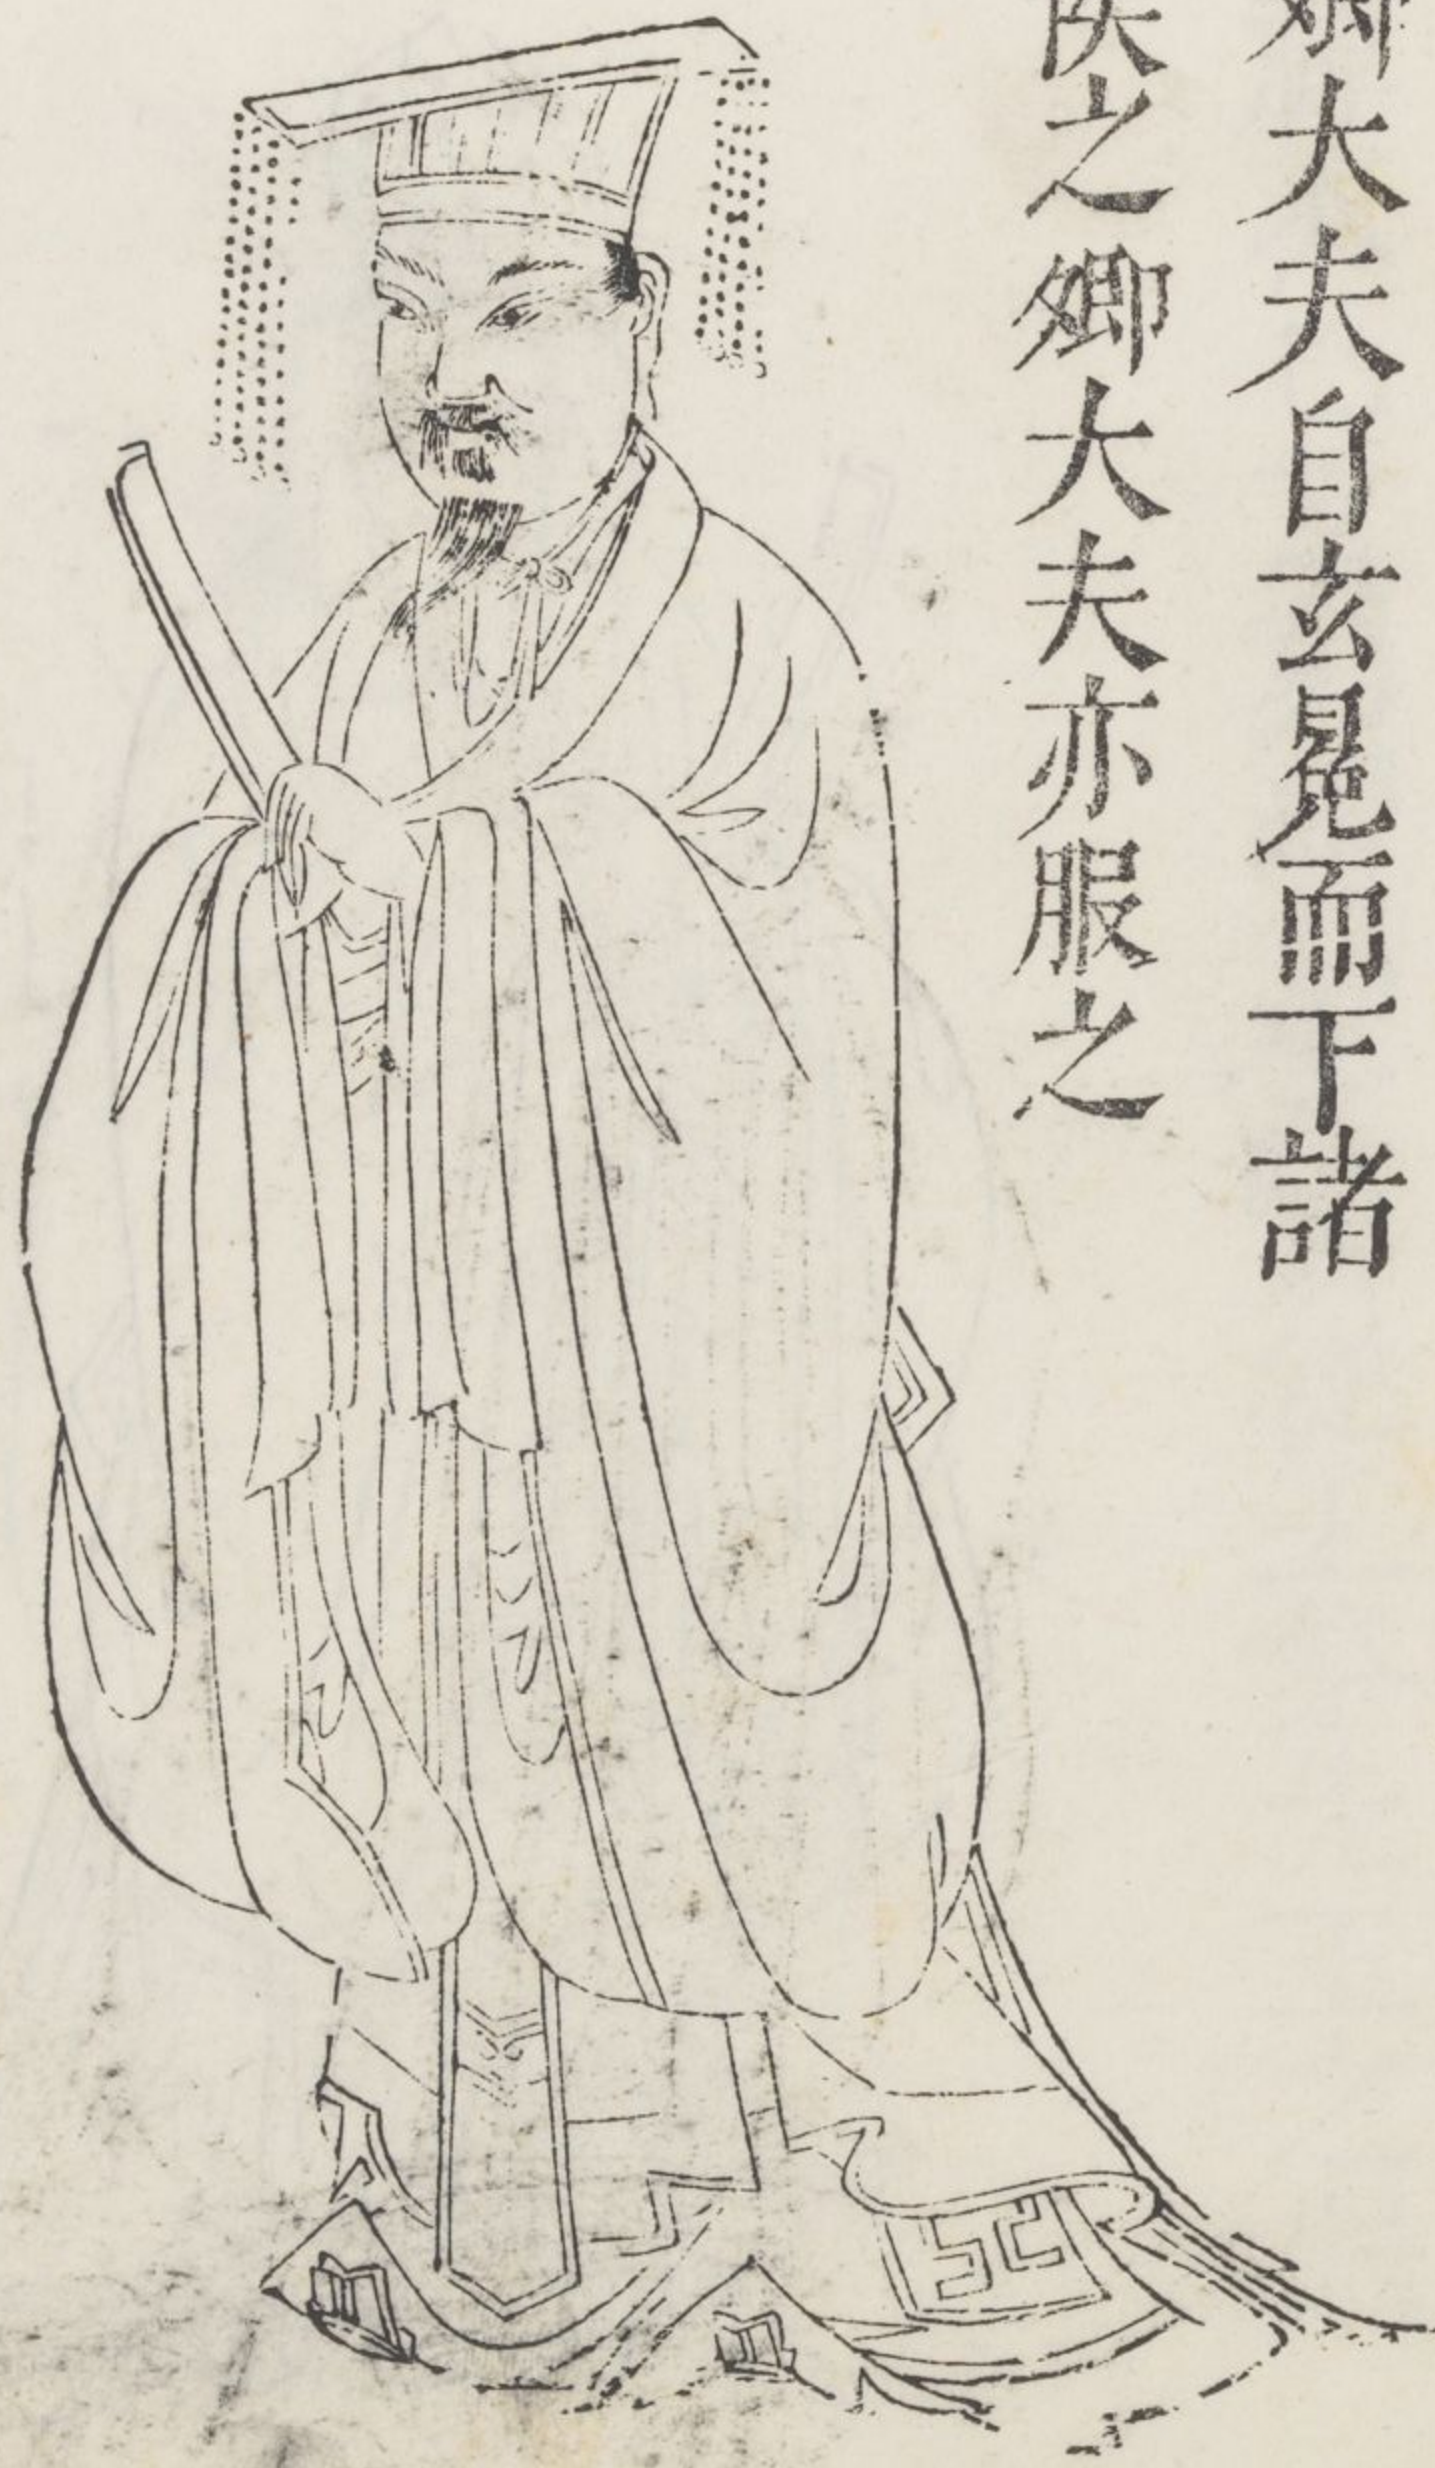 卿大夫自玄冕而下諸
侯之卿大夫亦服之